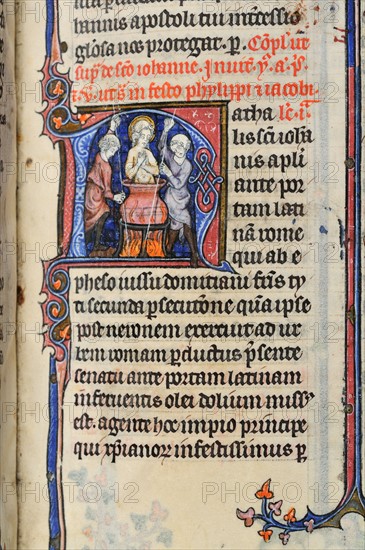 hannis apostoli tui intercessio
gl'osa nos protegat. p. Cōpl' ut
sup' de sc̄o iohanne. Inuit'. ꝟ. a. p̄s.
⁊ ꝟ. ut s̄ in festo phylippi ⁊ iacobi.
Natha le. i.
lis sc̄i ioh̄a
nis ap̄li
ante por
tam lati
nā rome
qui ab e
pheso iussu domitiani fr̄is ty
ti secunda ꝑsecutōne quā ip̄se
post neronem exercuit ad ur
bem romam ꝑductus p̄sente
senatu ante portam latinam
in feruentis olei dolium missꝰ
est. agente hoc impio principe
qui xp̄ianor infestissimus ꝑ
PHOTO12